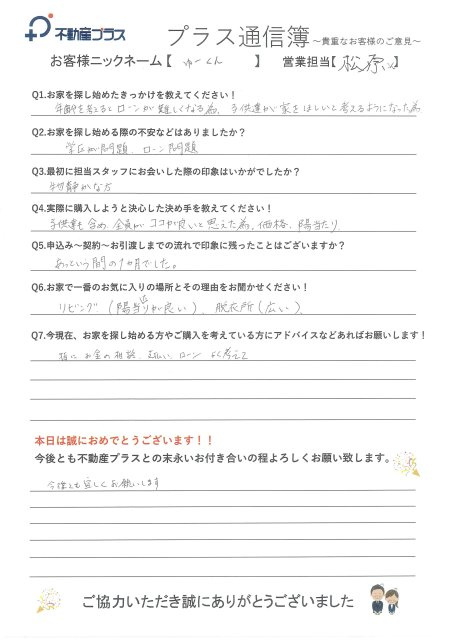 不動産プラス プラス通信簿 ～貴重なお客様のご意見～
お客様ニックネーム【 ゆーくん 】 営業担当【松原 】
Q1.お家を探し始めたきっかけを教えてください！
年齢を考えるとローンが難しくなる為、子供達が家をほしいと考えるようになった為
Q2.お家を探し始める際の不安などはありましたか？
学区が問題、ローン問題
Q3.最初に担当スタッフにお会いした際の印象はいかがでしたか？
物静かな方
Q4.実際に購入しようと決心した決め手を教えてください！
子供達も含め、全員がココが良いと思えた為、価格、陽当たり
Q5.申込み～契約～お引渡しまでの流れで印象に残ったことはございますか？
あっという間の1か月でした。
Q6.お家で一番のお気に入りの場所とその理由をお聞かせください！
リビング（陽当りが良い）、脱衣所（広い）
Q7.今現在、お家を探し始める方やご購入を考えている方にアドバイスなどあればお願いします！
お金の相談、支払い、ローン よく考えて
本日は誠におめでとうございます！！
今後とも不動産プラスとの末永いお付き合いの程よろしくお願い致します。
今後とも宜しくお願いします
ご協力いただき誠にありがとうございました